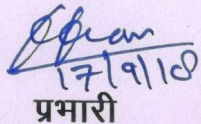 17/9/18
प्रभारी